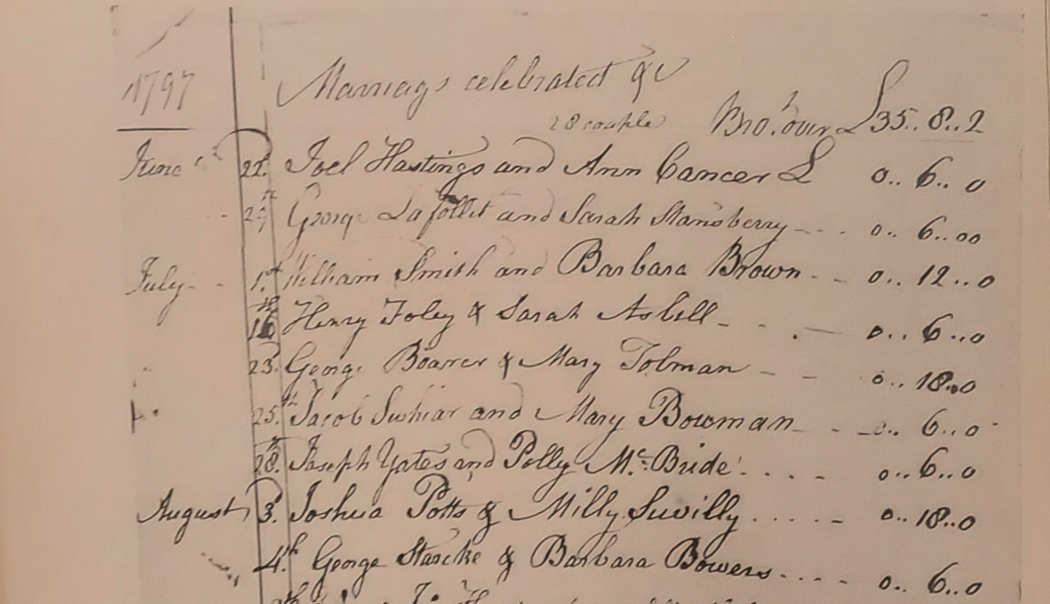 1797 Marriags celebrated &c
28 couple Bro.t over £35..8..2
June 22d Joel Hastings and Ann Cancer £ 0..6..0
George Lafollet and Sarah Stansberry 0..6..00
July 1st William Smith and Barbara Brown 0..12..0
16th Henry Foley & Sarah Asbill 0..6..0
23d George Boarrer & Mary Tolman 0..18..0
25th Jacob Swhiar and Mary Bowman 0..6..0
28th Joseph Yates and Polly Mc.Bride 0..6..0
August 3d Joshua Potts & Milly Suvilly 0..18..0
4th George Starcke & Barbara Bowers 0..6..0